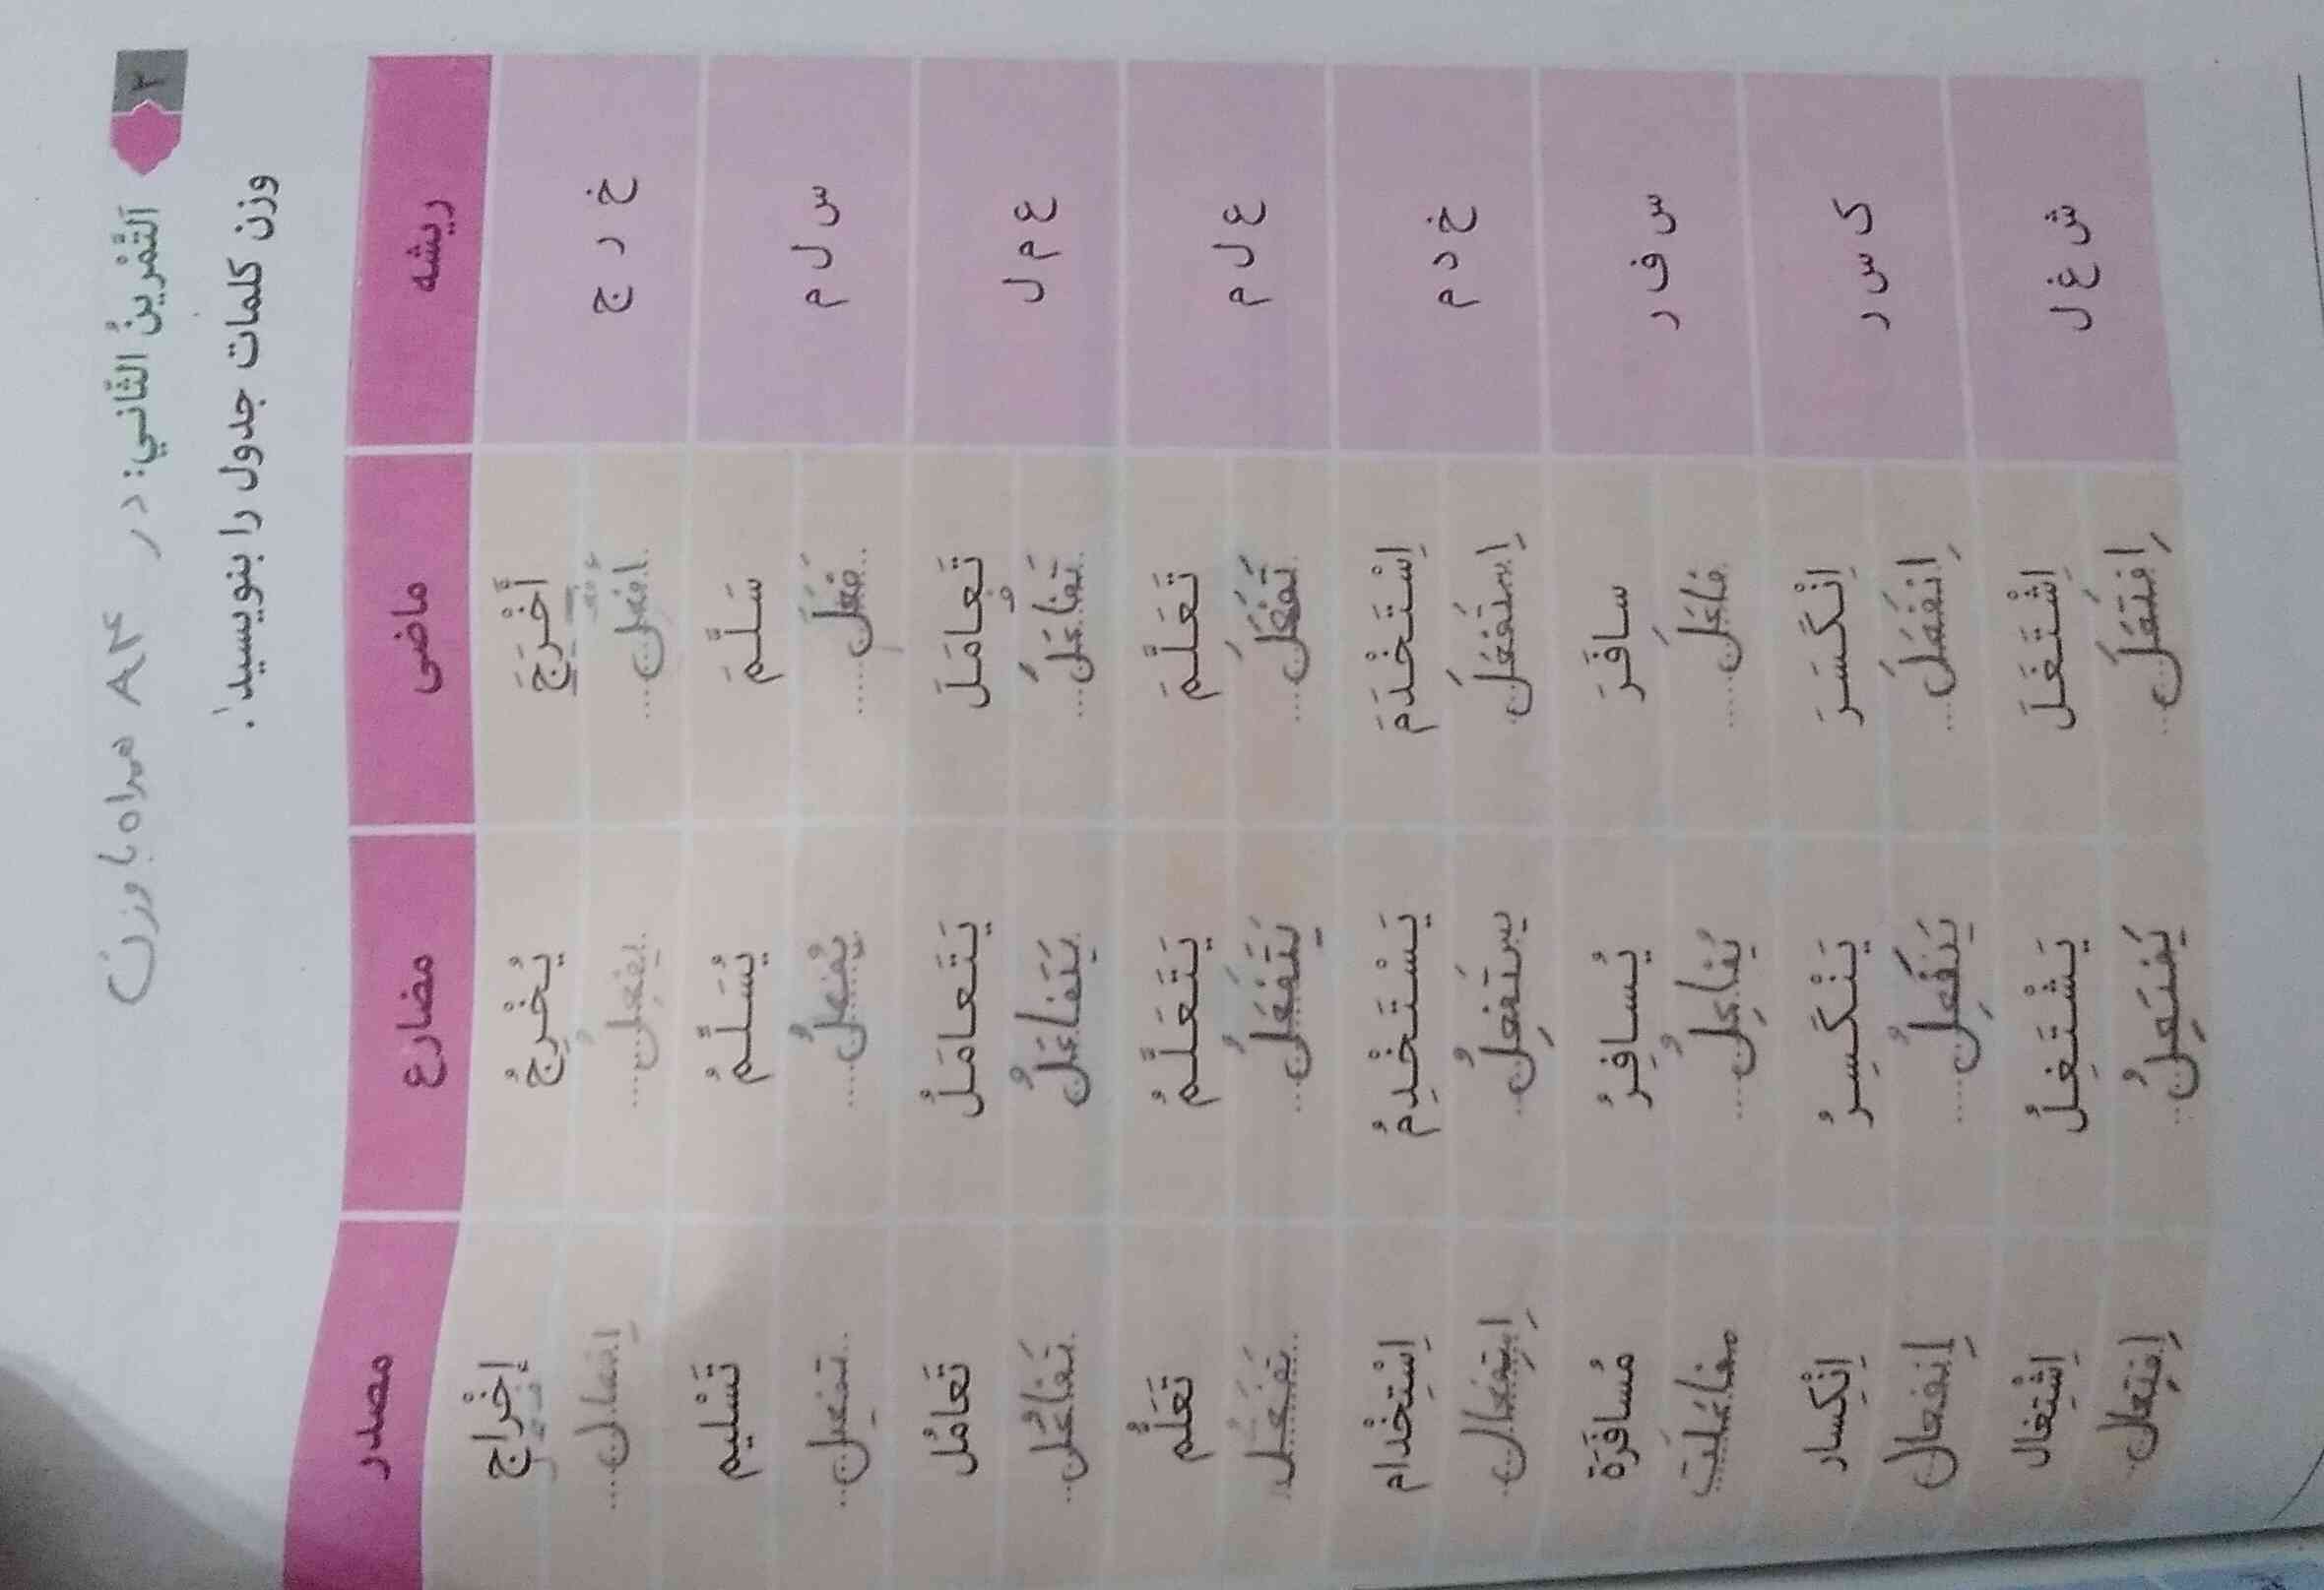 ٢ اَلتَّمْرينُ الثّاني: در ٨٣ همراه با وزن
وزن کلمات جدول را بنویسید.¹
ریشه ماضی مضارع مصدر
خ ر ج أَخْرَجَ يُخْرِجُ إِخْراج
افعل يفعِلُ اِفعال
س ل م سَلَّمَ يُسَلِّمُ تَسْليم
فَعَّلَ يُفَعِّلُ تفعيل
ع م ل تَعامَلَ يَتَعامَلُ تَعامُل
تَفاعَلَ يَتَفاعَلُ تَفاعُل
ع ل م تَعَلَّمَ يَتَعَلَّمُ تَعَلُّم
تَفَعَّلَ يَتَفَعَّلُ تَفَعُّل
خ د م اِسْتَخْدَمَ يَسْتَخْدِمُ اِسْتِخْدام
اِستَفعَلَ يستَفعِلُ
س ف ر سافَرَ يُسافِرُ مُسافَرَة
فاعَلَ يُفاعِلُ مفاعَلت
ک س ر اِنْكَسَرَ يَنْكَسِرُ اِنْكِسار
اِنفَعَلَ يَنفَعِلُ اِنفعال
ش غ ل اِشْتَغَلَ يَشْتَغِلُ اِشْتِغال
اِفتَعَلَ يَفتَعِلُ اِفتِعال